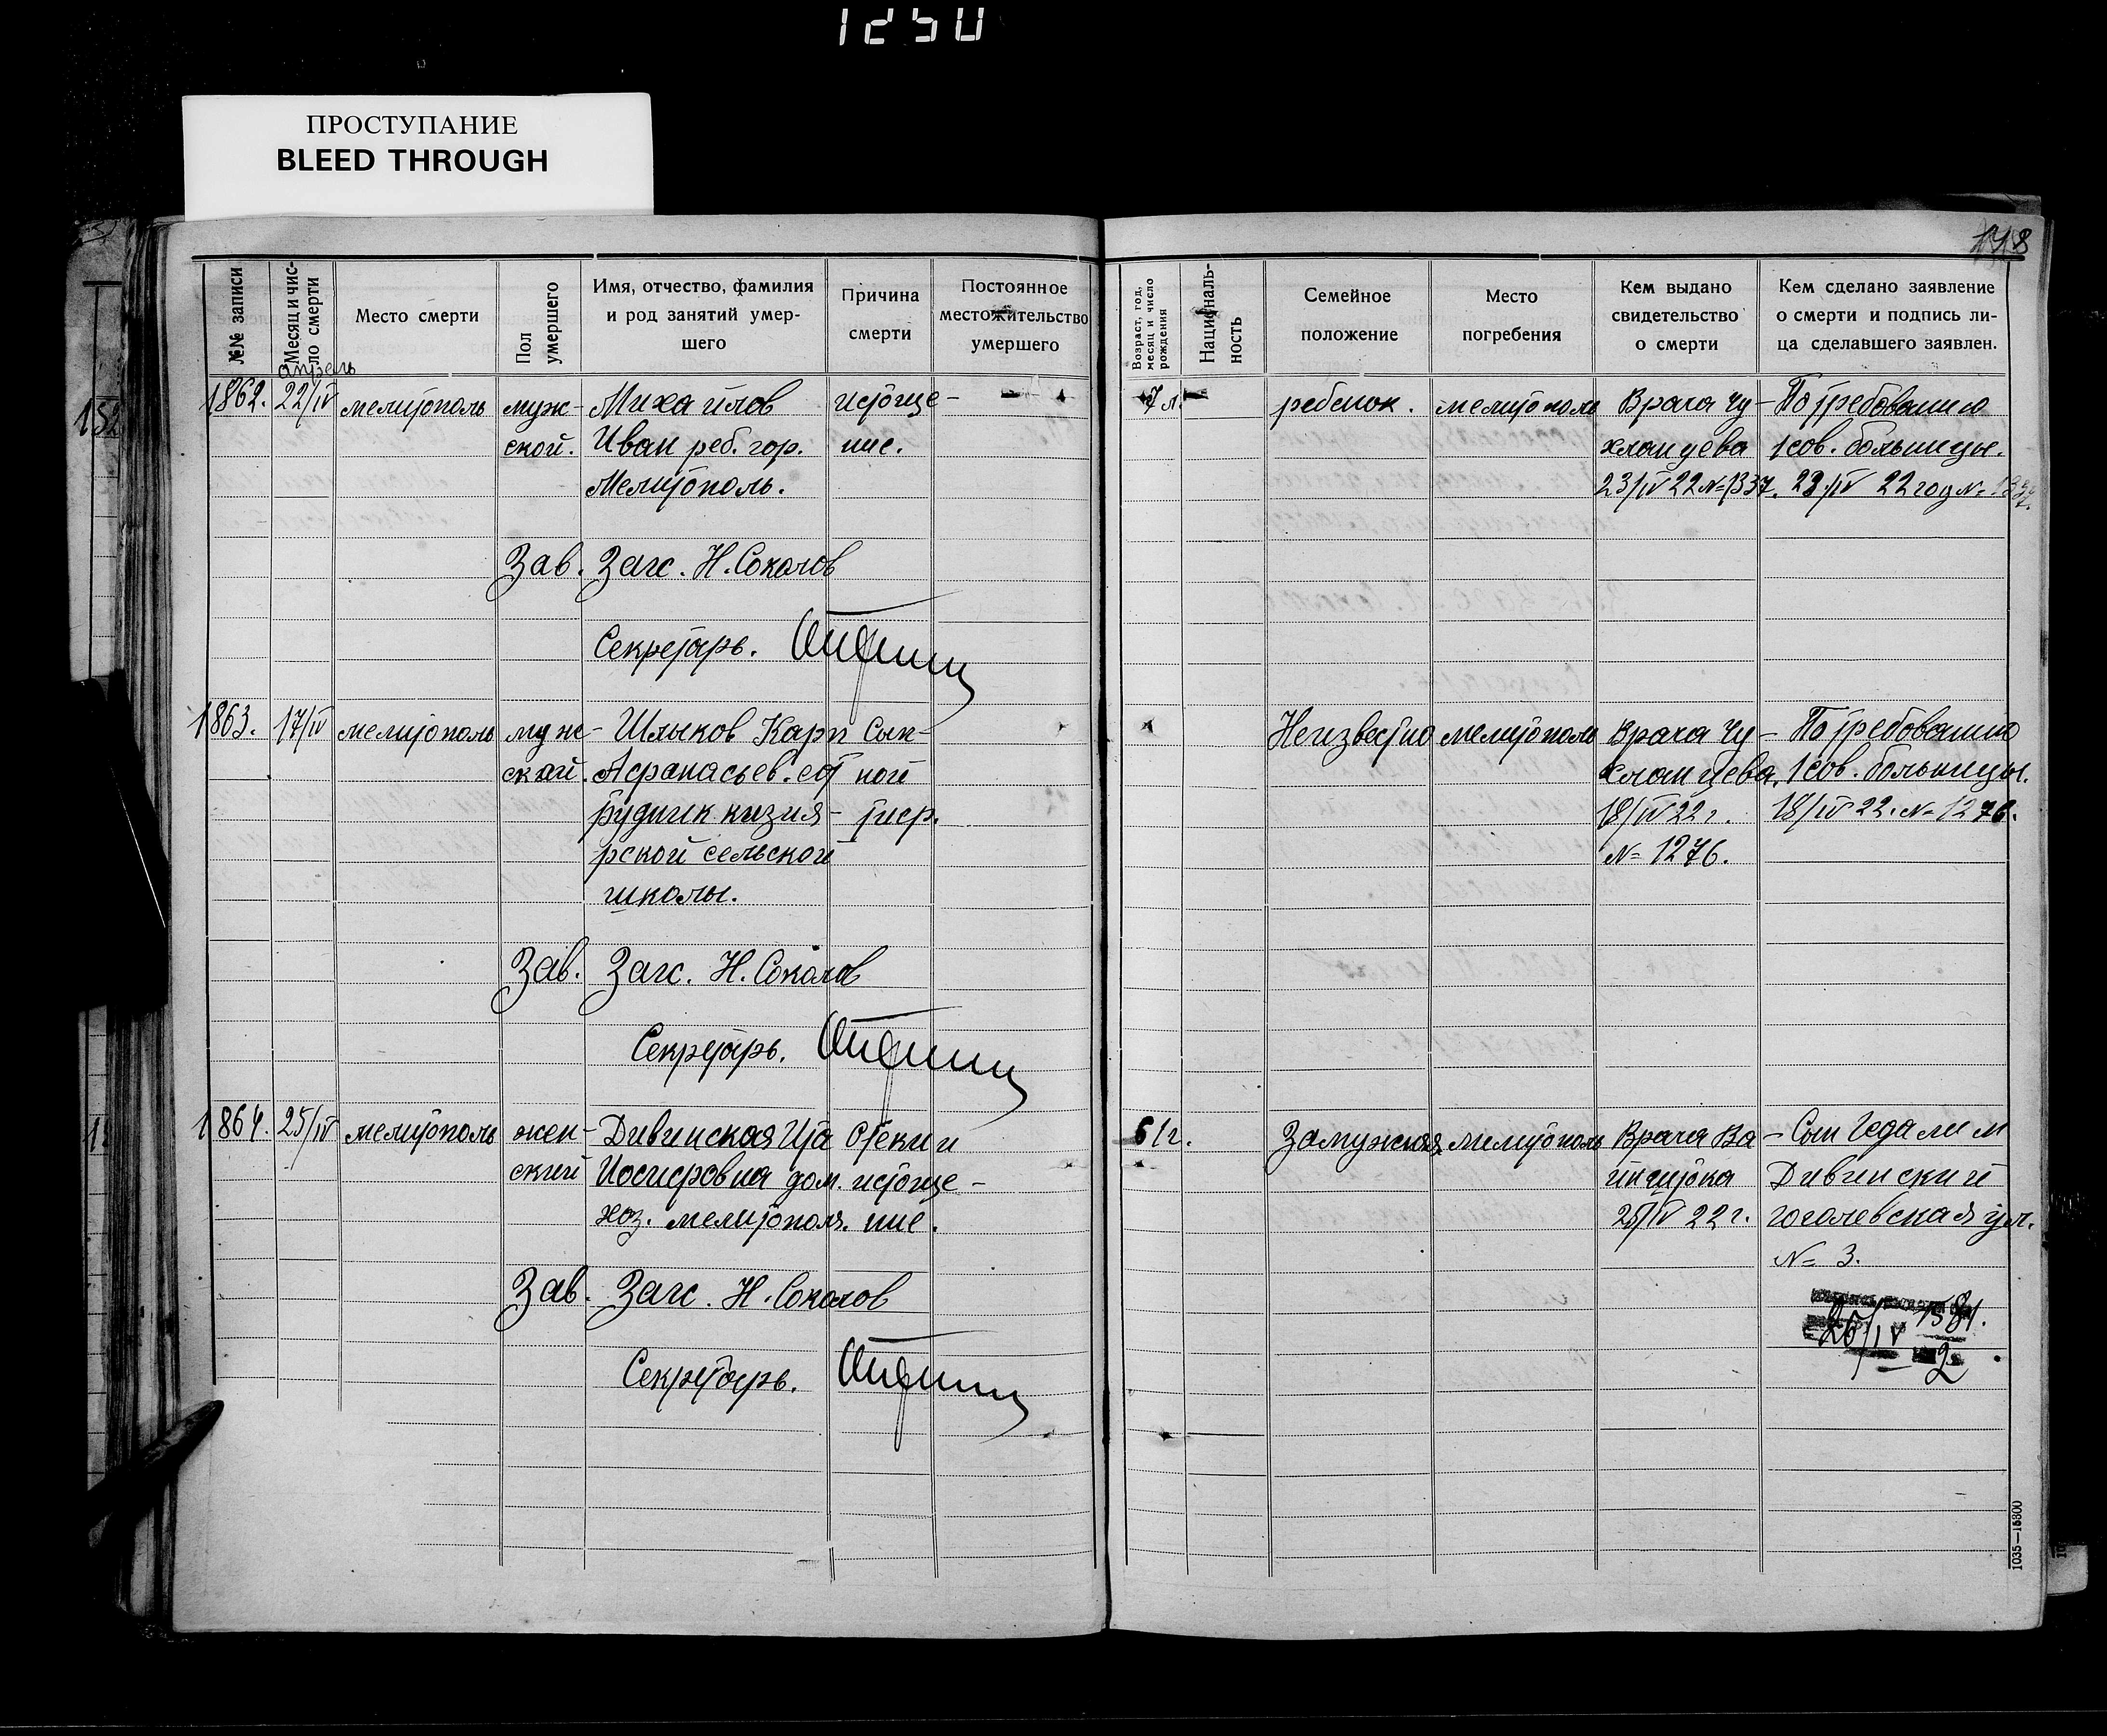 1250
ПРОСТУПАНИЕ
BLEED THROUGH
178
№№ записи
Месяц и чис-
ло смерти
Место смерти
Пол
умершего
Имя, отчество, фамилия
и род занятий умер-
шего
Причина
смерти
Постоянное
местожительство
умершего
Возраст, год,
месяц и число
рождения
Националь-
ность
Семейное
положение
Место
погребения
Кем выдано
свидетельство
о смерти
Кем сделано заявление
о смерти и подпись ли-
ца сделавшего заявлен.
апрель
1862. 22/IV мелитополь муж- Михайлов истоще- 7 л. ребенок. мелитополь Врача Чу- По требованию
ской. Иван реб. гор. ние. хланцева 1 сов. больницы.
Мелитополь. 23/IV 22 № 1337. 23/IV 22 год № 1337.
Зав. Загс. Н. Соколов
Секретарь.
1863. 17/IV мелитополь муж- Шлыков Карп Сып- Неизвестно мелитополь Врача Чу- По требованию
ской. Афанасьев. сот ной хланцева. 1 сов. больницы.
рудник кизия- тиф. 18/IV 22 г. 18/IV 22. № 1276.
рской сельской № 1276.
школы.
Зав. Загс. Н. Соколов
Секретарь.
1864. 25/IV мелитополь жен- Дивинская Ита Отеки и 61 г. Замужняя мелитополь Врача Ва- Сын Гедалим
ский Иосифовна дом. истоще- йнштока Дивинский
хоз. мелитополя. ние. 25/IV 22 г. гоголевская ул.
№ 3.
Зав. Загс. Н. Соколов
26/IV
2
Секретарь.
1035—15300